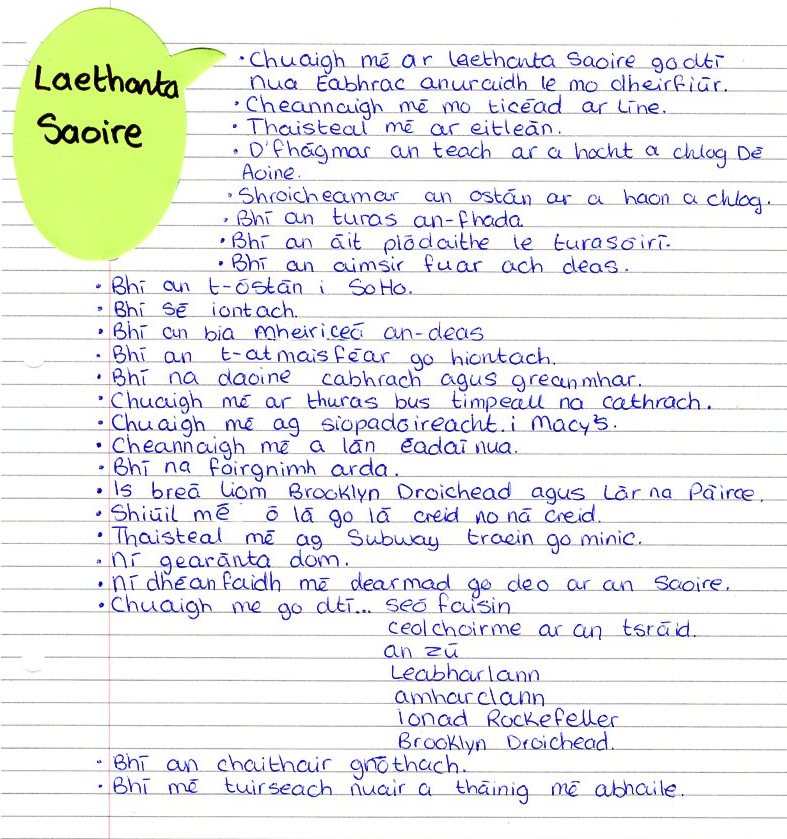 Laethanta
Saoire
• Chuaigh mé ar laethanta Saoire go dtí
nua Eabhrac anuraidh le mo dheirfiúr.
• Cheannaigh mé mo ticéad ar líne.
• Thaisteal mé ar eitleán.
• D'fhágmar an teach ar a hocht a chlog Dé
Aoine.
• Shroicheamar an ostán ar a haon a chlog.
• Bhí an turas an-fhada.
• Bhí an áit plódaithe le turasóirí.
• Bhí an aimsir fuar ach deas.
• Bhí an t-óstán i SoHo.
• Bhí sé iontach.
• Bhí an bia mheiriceá an-deas
• Bhí an t-atmaisféar go hiontach.
• Bhí na daoine cabhrach agus greannmhar.
• Chuaigh mé ar thuras bus timpeall na cathrach.
• Chuaigh mé ag siopadóireacht i Macy's.
• Cheannaigh mé a lán éadaí nua.
• Bhí na foirgnimh arda.
• Is breá liom Brooklyn Droichead agus Lár na Páirce.
• Shiúil mé ó lá go lá creid no ná creid.
• Thaisteal mé ag Subway traein go minic.
• Ní gearánta dom.
• Ní dhéanfaidh mé dearmad go deo ar an Saoire.
• Chuaigh me go dtí... seó faisin
ceolchoirme ar an tsráid.
an zú
Leabharlann
amharclann
Ionad Rockefeller
Brooklyn Droichead.
• Bhí an chaithair gnóthach.
• Bhí mé tuirseach nuair a tháinig mé abhaile.